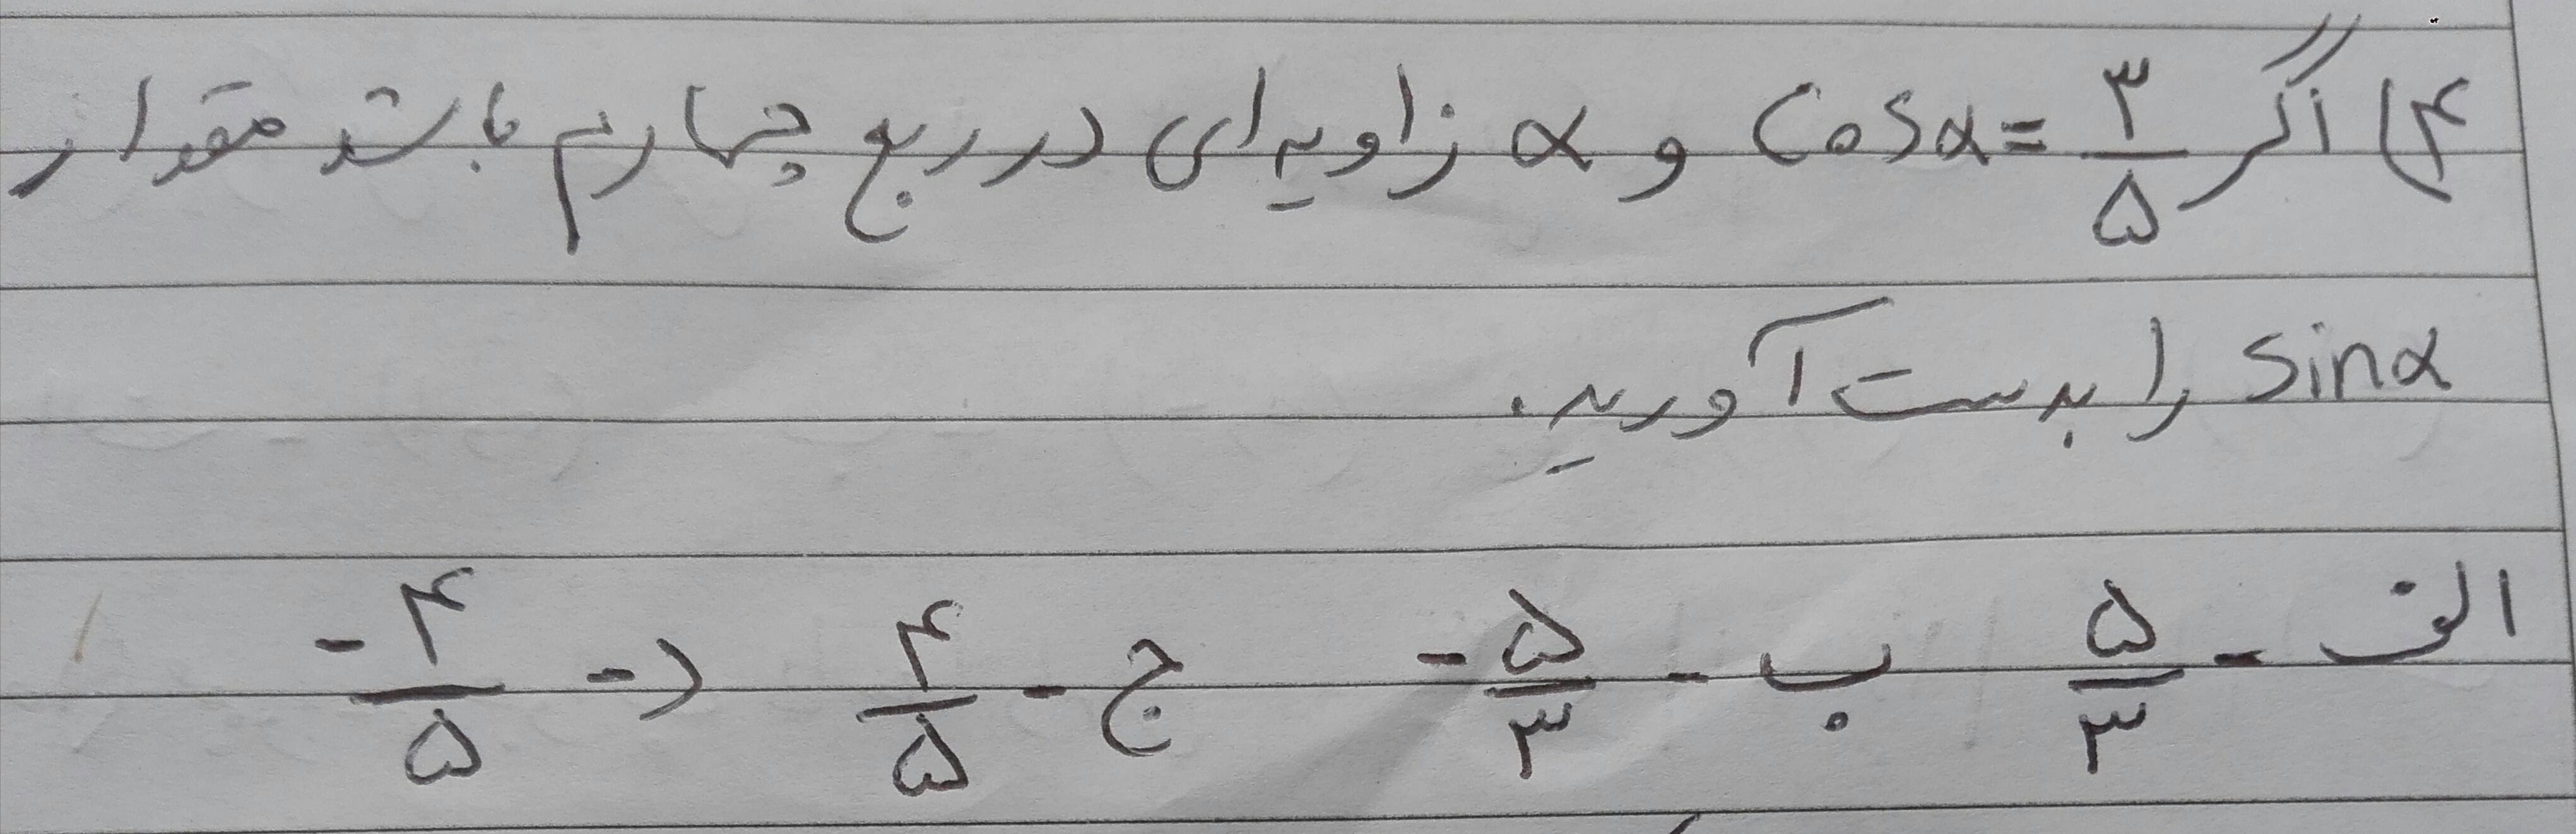 ۴) اگر cosα = ۳/۵ و α زاویه ای در ربع چهارم باشد مقدار
sinα را بدست آورید.
الف - ۵/۳ ب - -۵/۳ ج - ۴/۵ د - -۴/۵